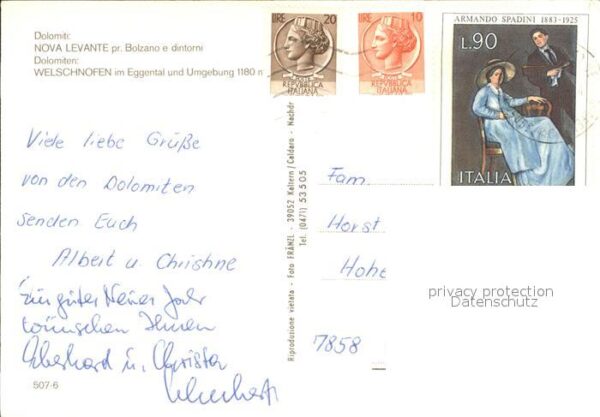 Dolomiti:
NOVA LEVANTE pr. Bolzano e dintorni
Dolomiten:
WELSCHNOFEN im Eggental und Umgebung 1180 m
LIRE 20
POSTE
REPVBBLICA
ITALIANA
LIRE 10
POSTE
REPVBBLICA
ITALIANA
ARMANDO SPADINI 1883-1925
L.90
ITALIA
Viele liebe Grüße
von den Dolomiten
senden Euch
Albert u. Christine
Ein gutes Neues Jahr
wünschen Ihnen
Eberhard u. Christa
507-6
Riproduzione vietata - Foto FRÄNZL - 39052 Kaltern/Caldaro - Nachdr
Tel. (0471) 53505
Fam.
Horst
Hohe
7858
privacy protection
Datenschutz